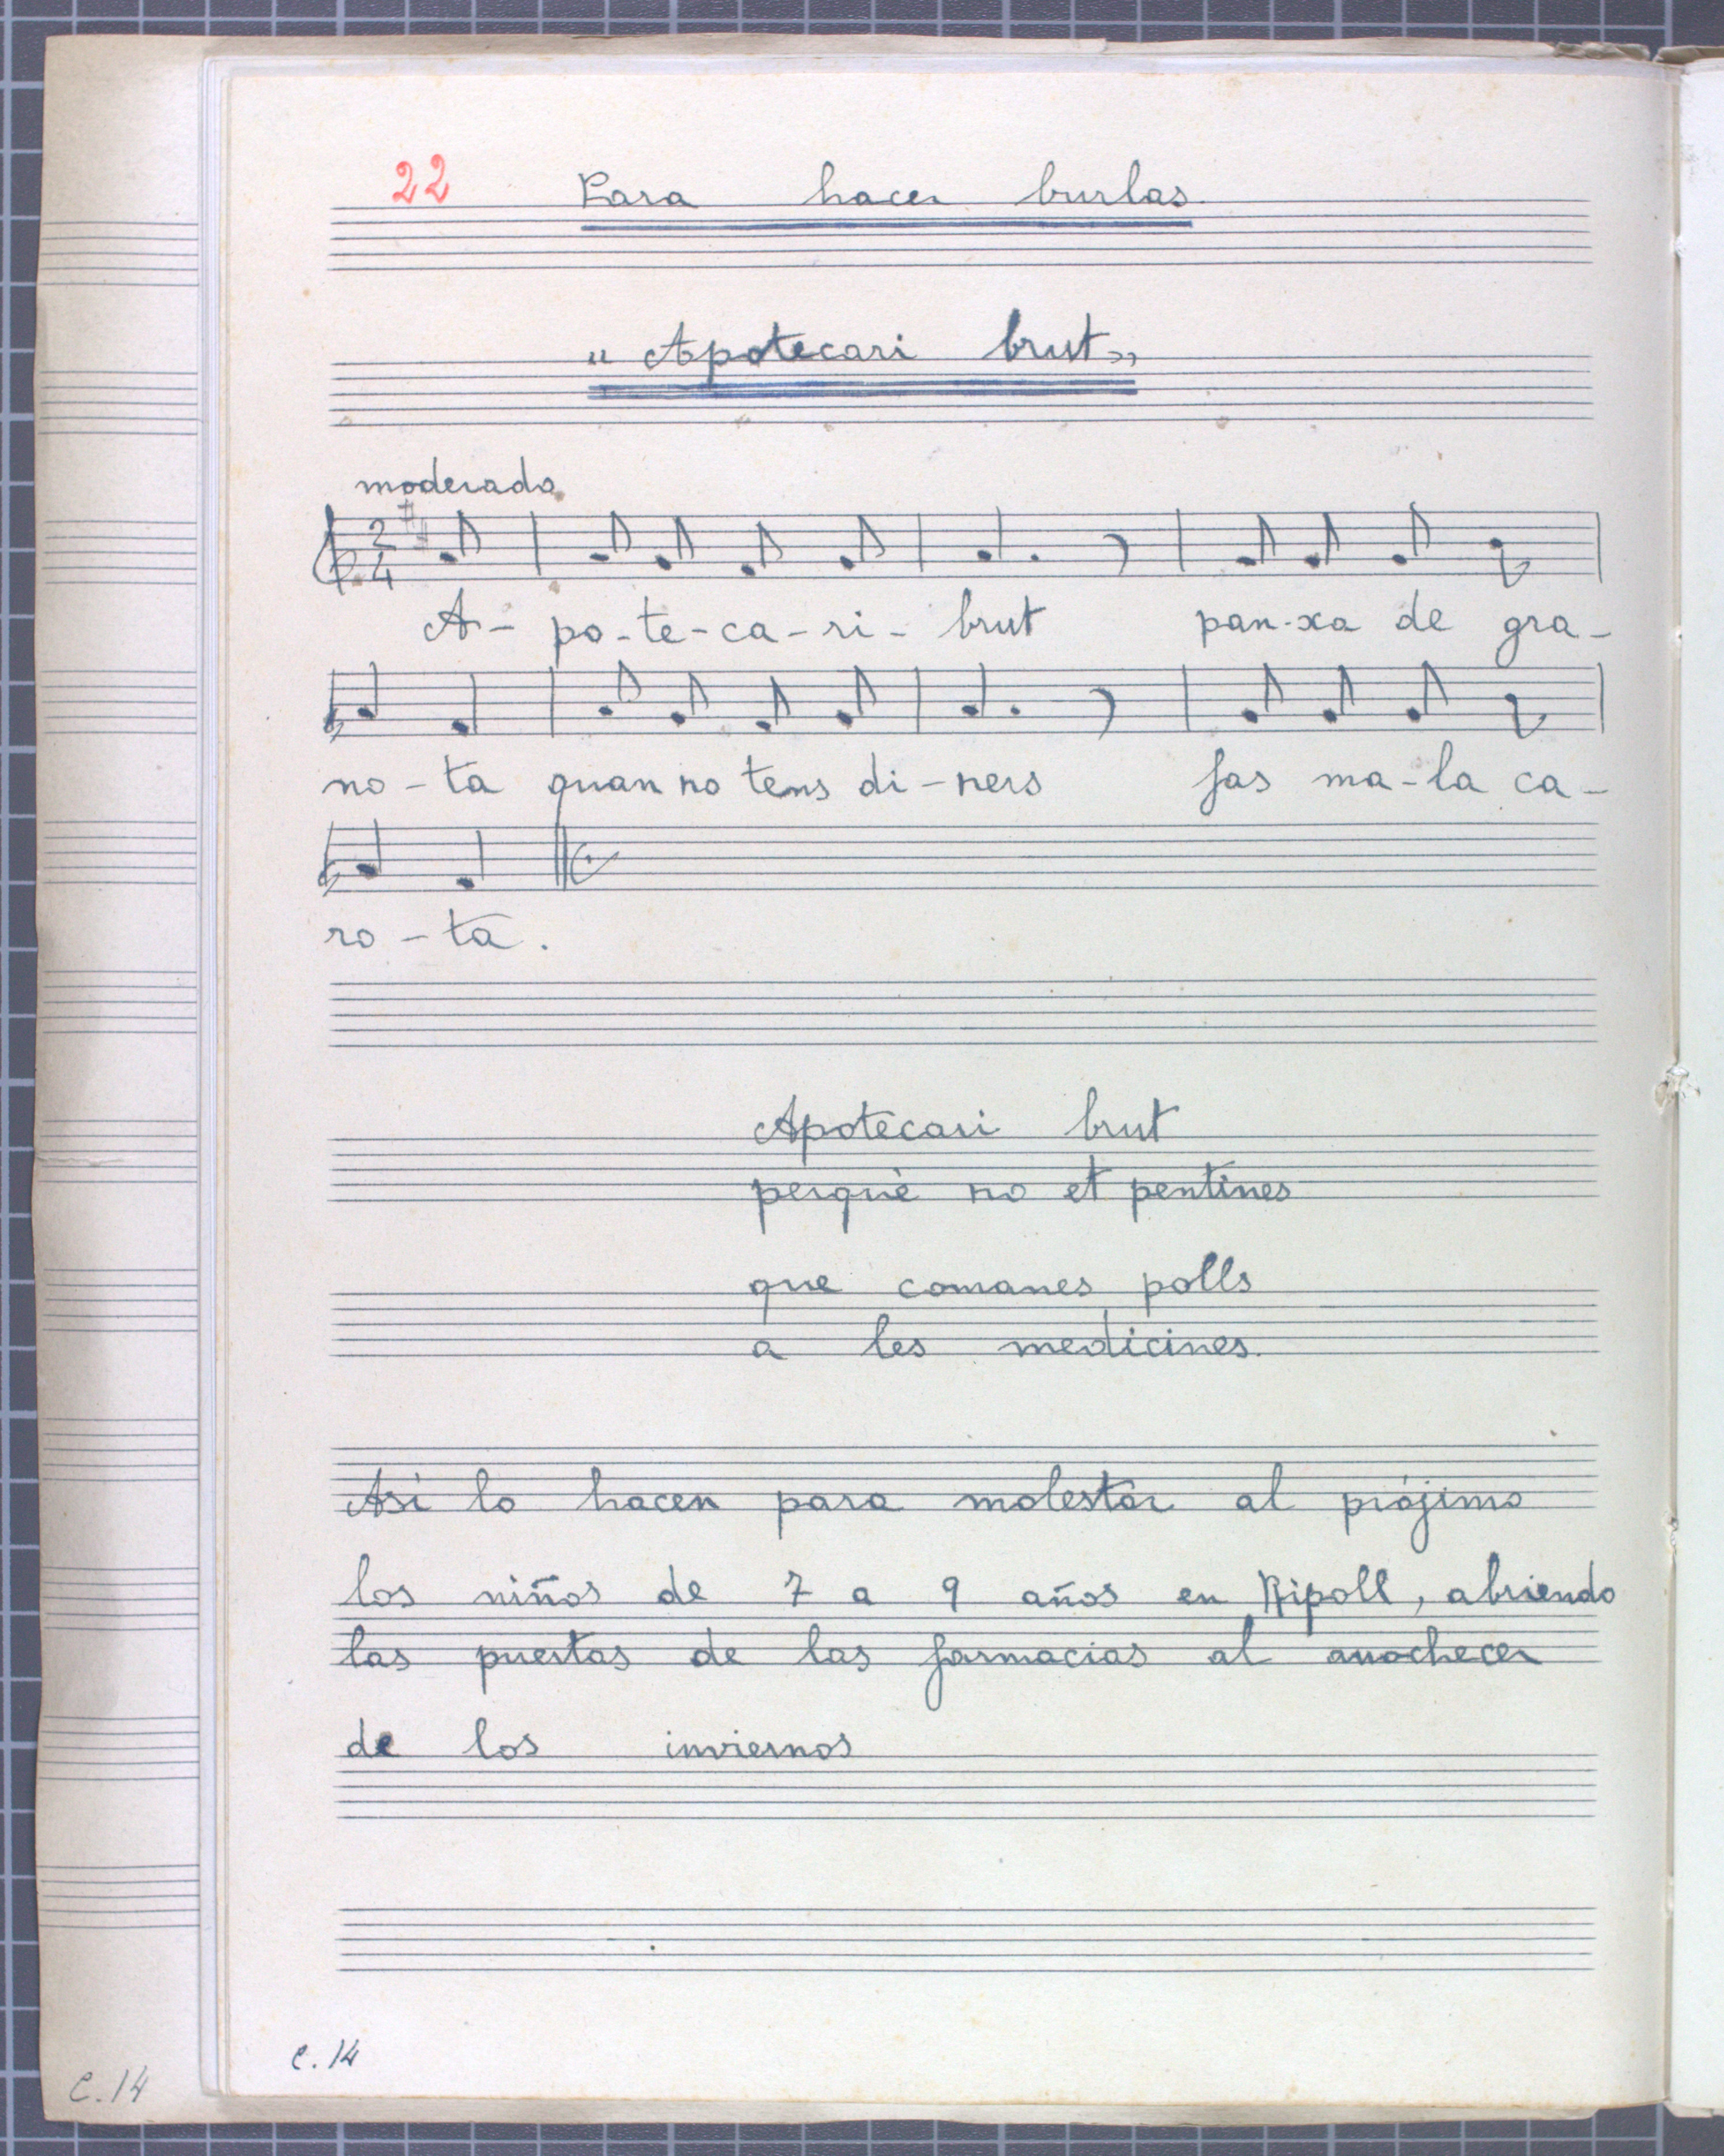 22 Para hacer burlas.
"Apotecari brut"
moderado
2
4
A- po-te-ca-ri- brut pan-xa de gra-
no-ta quan no tens di-ners fas ma-la ca-
ro-ta.
Apotecari brut
perquè no et pentines
que comanes polls
a les medicines.
Así lo hacen para molestar al prójimo
los niños de 7 a 9 años en Ripoll, abriendo
las puertas de las farmacias al anochecer
de los inviernos
C.14
C.14